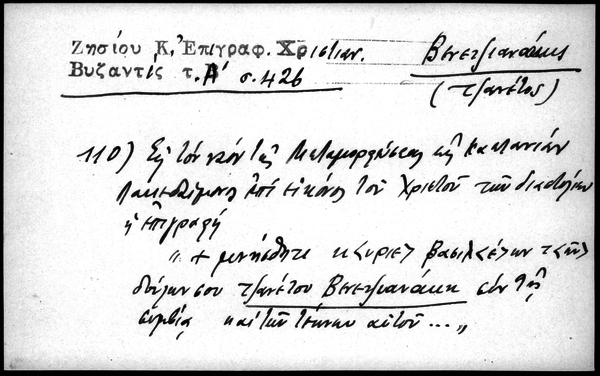 Ζησίου Κ, Ἐπιγραφ. Χριστιαν.
Βυζαντίς τ. Α' σ. 426
Βενετσιανάκη
(τζανέτος)
110) Εἰς τὸν ναὸν τῆς Μεταμορφώσεως εἰς Καστανιὰν
ἐπὶ εἰκόνος τοῦ Χριστοῦ τῶν
ἡ ἐπιγραφὴ
" + μνήσθητι κ<ύριε> βασιλ<έ>ων τ<ῶν>
δούλων σου τζανέτου Βενετζιανάκη σὺν τῆς
συμβίας καὶ τῶν τέκνων αὐτοῦ ... „